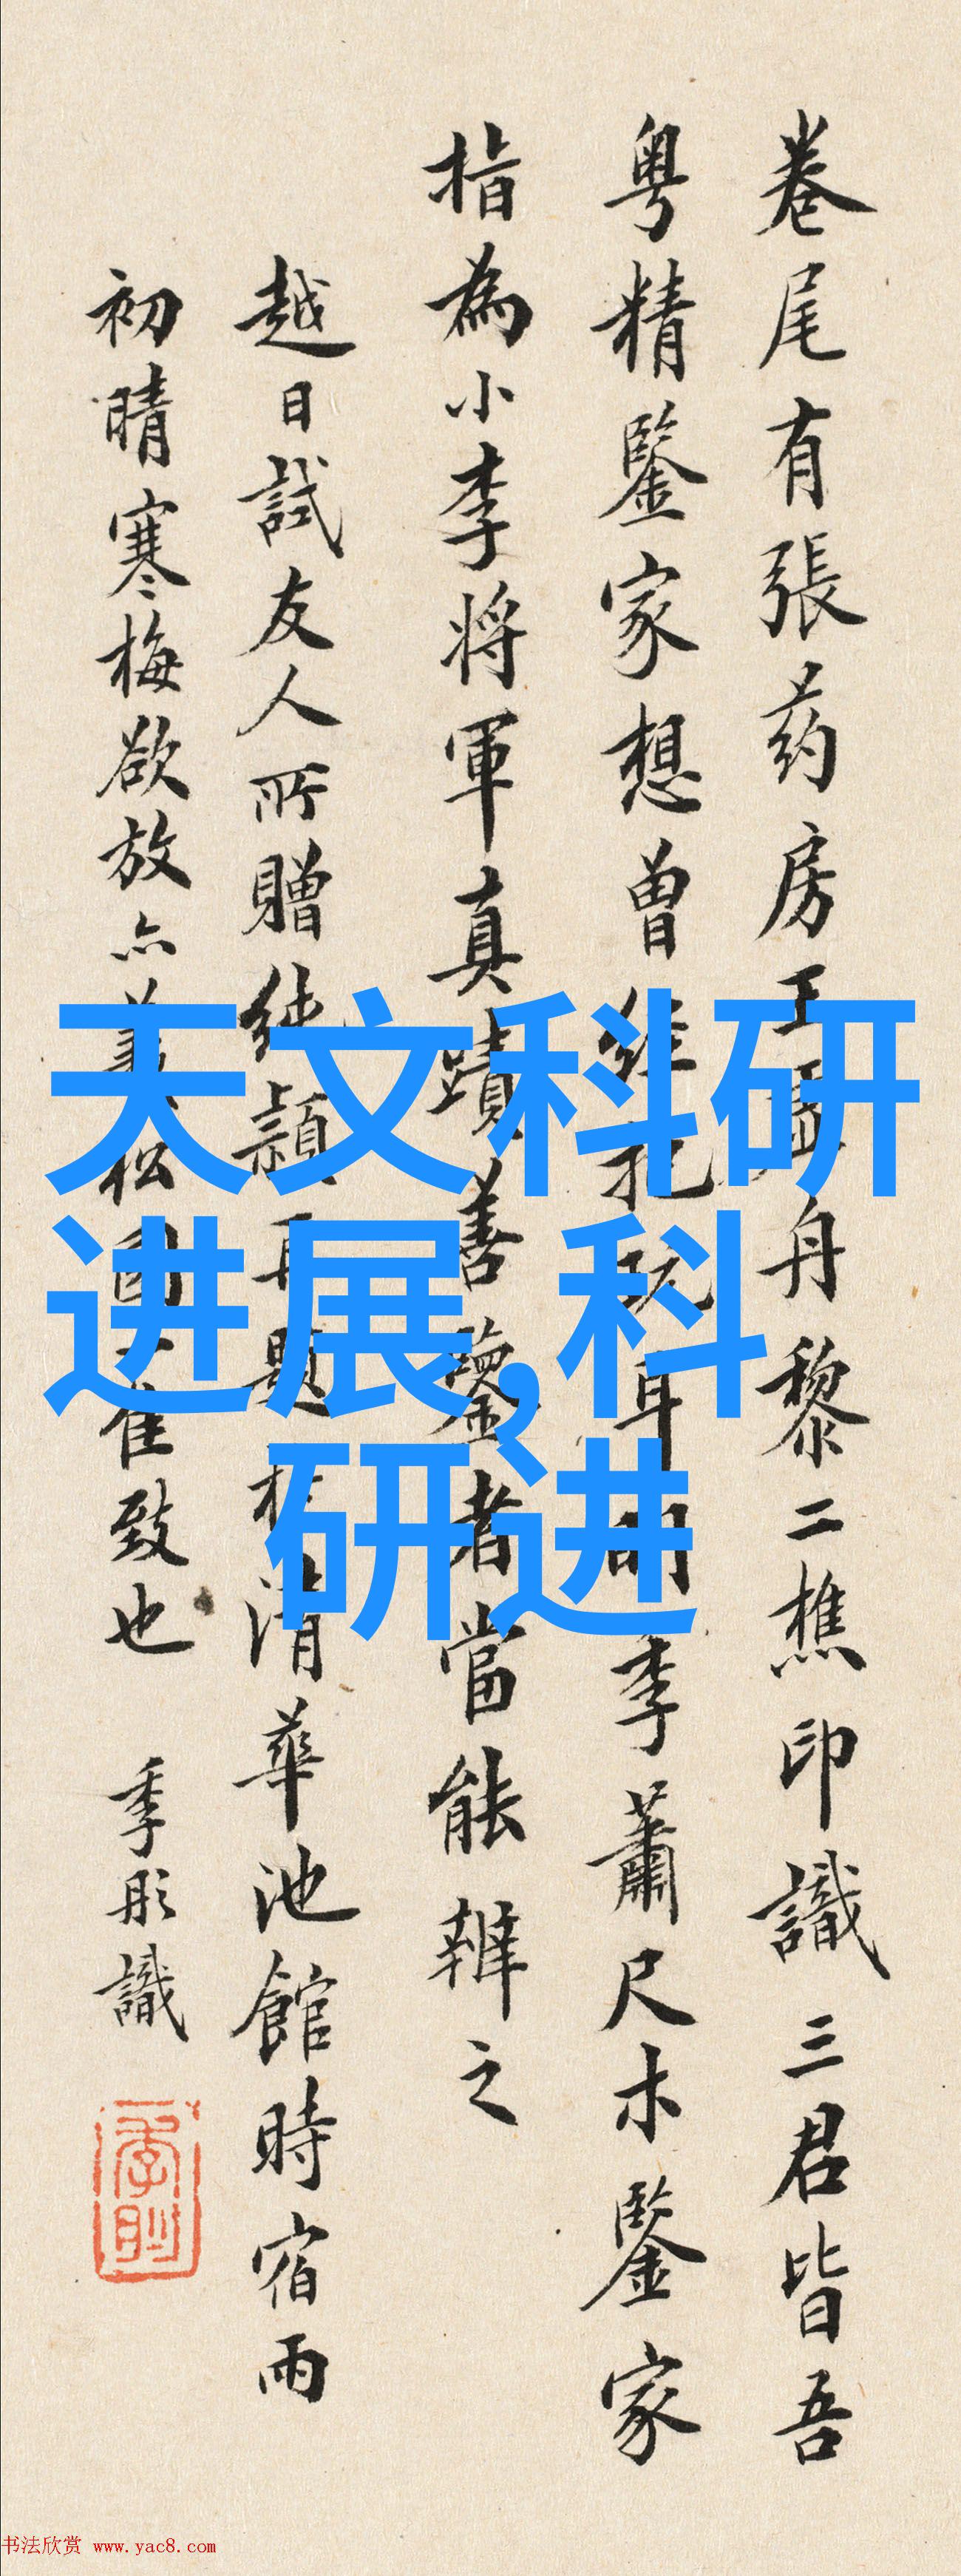 天文科研
进展,科
研进
卷尾有張药房王 舟黎二樵印識三君皆吾
粤精鑒家想曾經 季蕭尺木鑒家
指為小李将軍真蹟善鑒者當能辨之
越日試友人所贈 穎再題 清華池館時宿雨
初晴寒梅欲放亦 致也
季彤識
书法欣赏 www.yac8.com